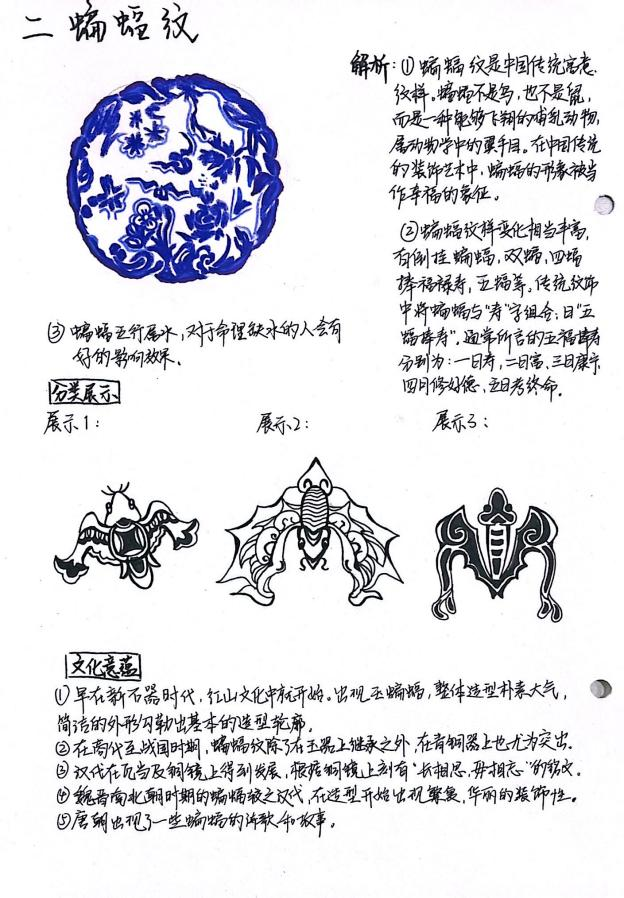 二 蝙蝠纹
解析:①蝙蝠纹是中国传统寓意
纹样。蝙蝠不是鸟,也不是鼠,
而是一种能够飞翔的哺乳动物,
属动物学中的翼手目。在中国传统
的装饰艺术中,蝙蝠的形象被当
作幸福的象征。
②蝙蝠纹样变化相当丰富,
有倒挂蝙蝠,双蝠,四蝠
捧福禄寿,五蝠等。传统纹饰
中将蝙蝠与“寿”字组合,曰“五
蝠捧寿”。通常所言的五福捧寿
分别为:一曰寿,二曰富,三曰康宁,
四曰修好德,五曰考终命。
③ 蝙蝠五行属水,对于命理缺水的人会有
好的影响效果。
分类展示
展示1:
展示2:
展示3:
文化意蕴
①早在新石器时代,红山文化中就开始。出现玉蝙蝠,整体造型朴素大气,
简洁的外形勾勒出基本的造型轮廓。
②在商代至战国时期,蝙蝠纹除了在玉器上继承之外,在青铜器上也尤为突出。
③汉代在瓦当及铜镜上得到发展,根据铜镜上刻有“长相思,毋相忘”的铭文。
④魏晋南北朝时期的蝙蝠较之汉代,在造型开始出现繁复,华丽的装饰性。
⑤唐朝出现了一些蝙蝠的诗歌和故事。